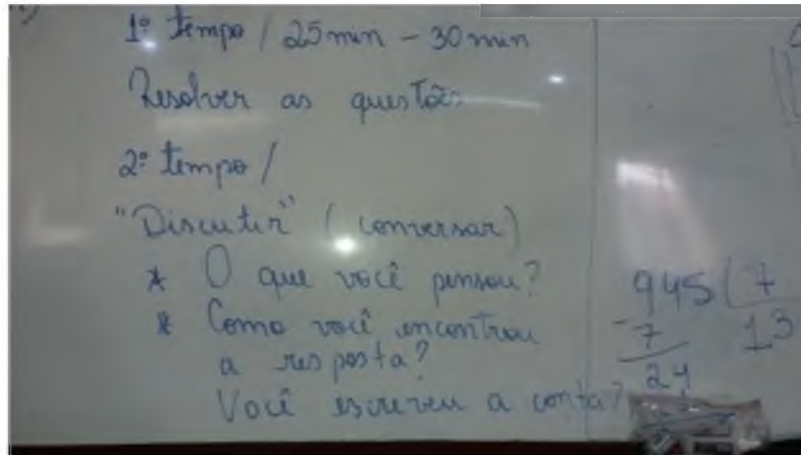 1º tempo / 25min - 30min
Resolver as questões
2º tempo /
"Discutir" (conversar)
* O que você pensou?
* Como você encontrou
a resposta?
Você escreveu a conta?
945 7
-7 13
24